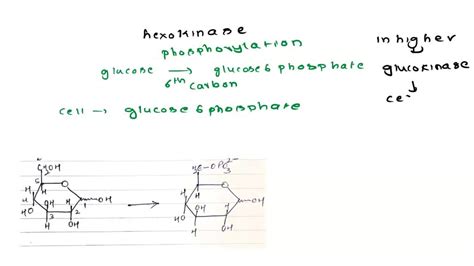 Hexokinase
phosphorylation
glucose → glucose 6 phosphate
6th
carbon
cell → glucose 6 phosphate
in higher
glucokinase
↓
ce
CH2OH
6
H
O
H
4
OH
H
1
OH
HO
3
2
H
OH
→
H2C-OPO3 2-
H
O
H
OH
H
OH
HO
H
OH